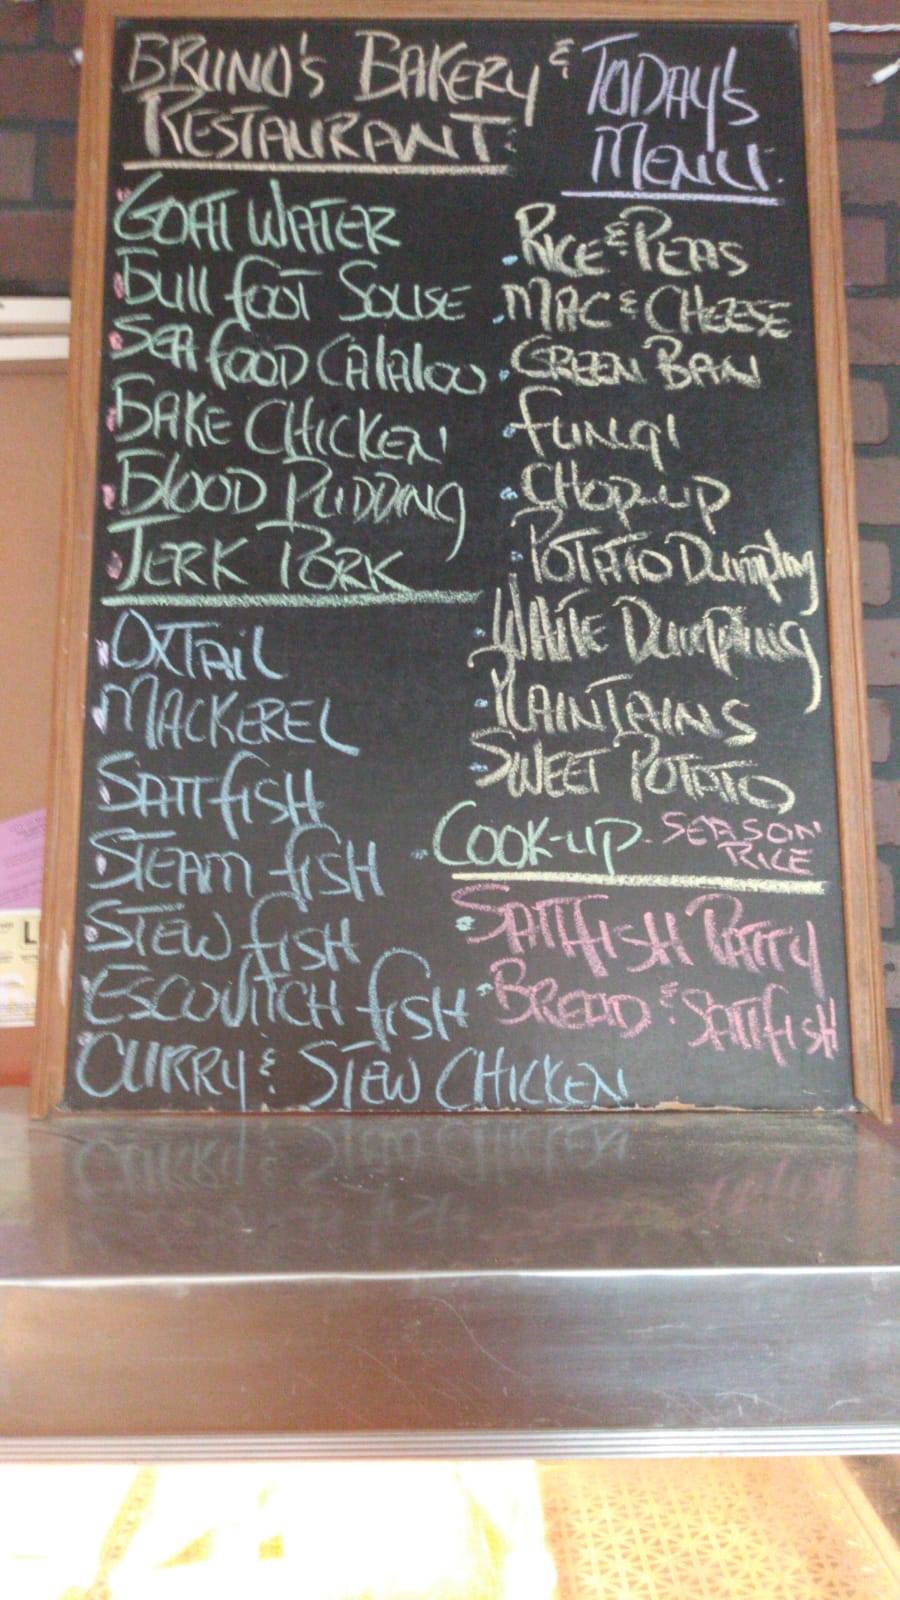 BRUNO'S BAKERY &
RESTAURANT:
TODAY'S
MENU:
GOAT WATER
Bull foot SOUSE
SEA fOOD CAlAlOU
BAKE CHICKEN
BlOOD PUDDING
JERK PORK
OXTAIL
MACKEREL
SATTfISH
STEAM fISH
STEW fISH
ESCOVITCH fISH
CURRY & STEW CHICKEN
RICE & PEAS
MAC & CHEESE
GREEN BAN
fUNGI
CHOP-UP
POTATO Dumpling
WHITE DUMPLING
PLAINTAINS
SWEET POTATO
COOK-UP. SEASON
RICE
SATTfISH PATTY
BREAD & SATTfISH